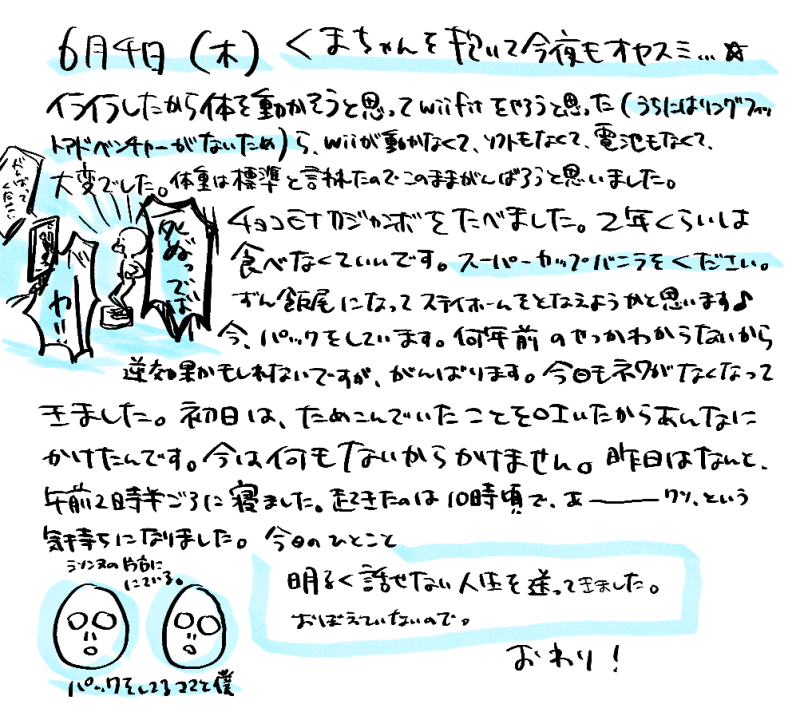 6月4日(木) くまちゃんを抱いて今夜もオヤスミ...☆
イライラしたから体を動かそうと思ってwii fitをやろうと思った(うちにはリングフィッ
トアドベンチャーがないため)ら、wiiが動かなくて、ソフトもなくて、電池もなくて、
大変でした。体重は標準と言われたのでこのままがんばろうと思いました。
がんばって
ください
死ぬってば
わ!!
チョコモナカジャンボをたべました。2年くらいは
食べなくていいです。スーパーカップバニラをください。
ずん飯尾になってステイホームをとなえようかと思います♪
今、パックをしています。何年前のやつかわからないから
逆効果かもしれないですが、がんばります。今日もネタがなくなって
きました。初日は、ためこんでいたことを吐いたからあんなに
かけたんです。今は何もないからかけません。昨日はなんと、
午前2時半ごろに寝ました。起きたのは10時頃で、あーークソ、という
気持ちになりました。今日のひとこと
明るく話せない人生を送ってきました。
おぼえていないので。
おわり!
ラソンヌの片方に
にている。
パックをしてるママと僕